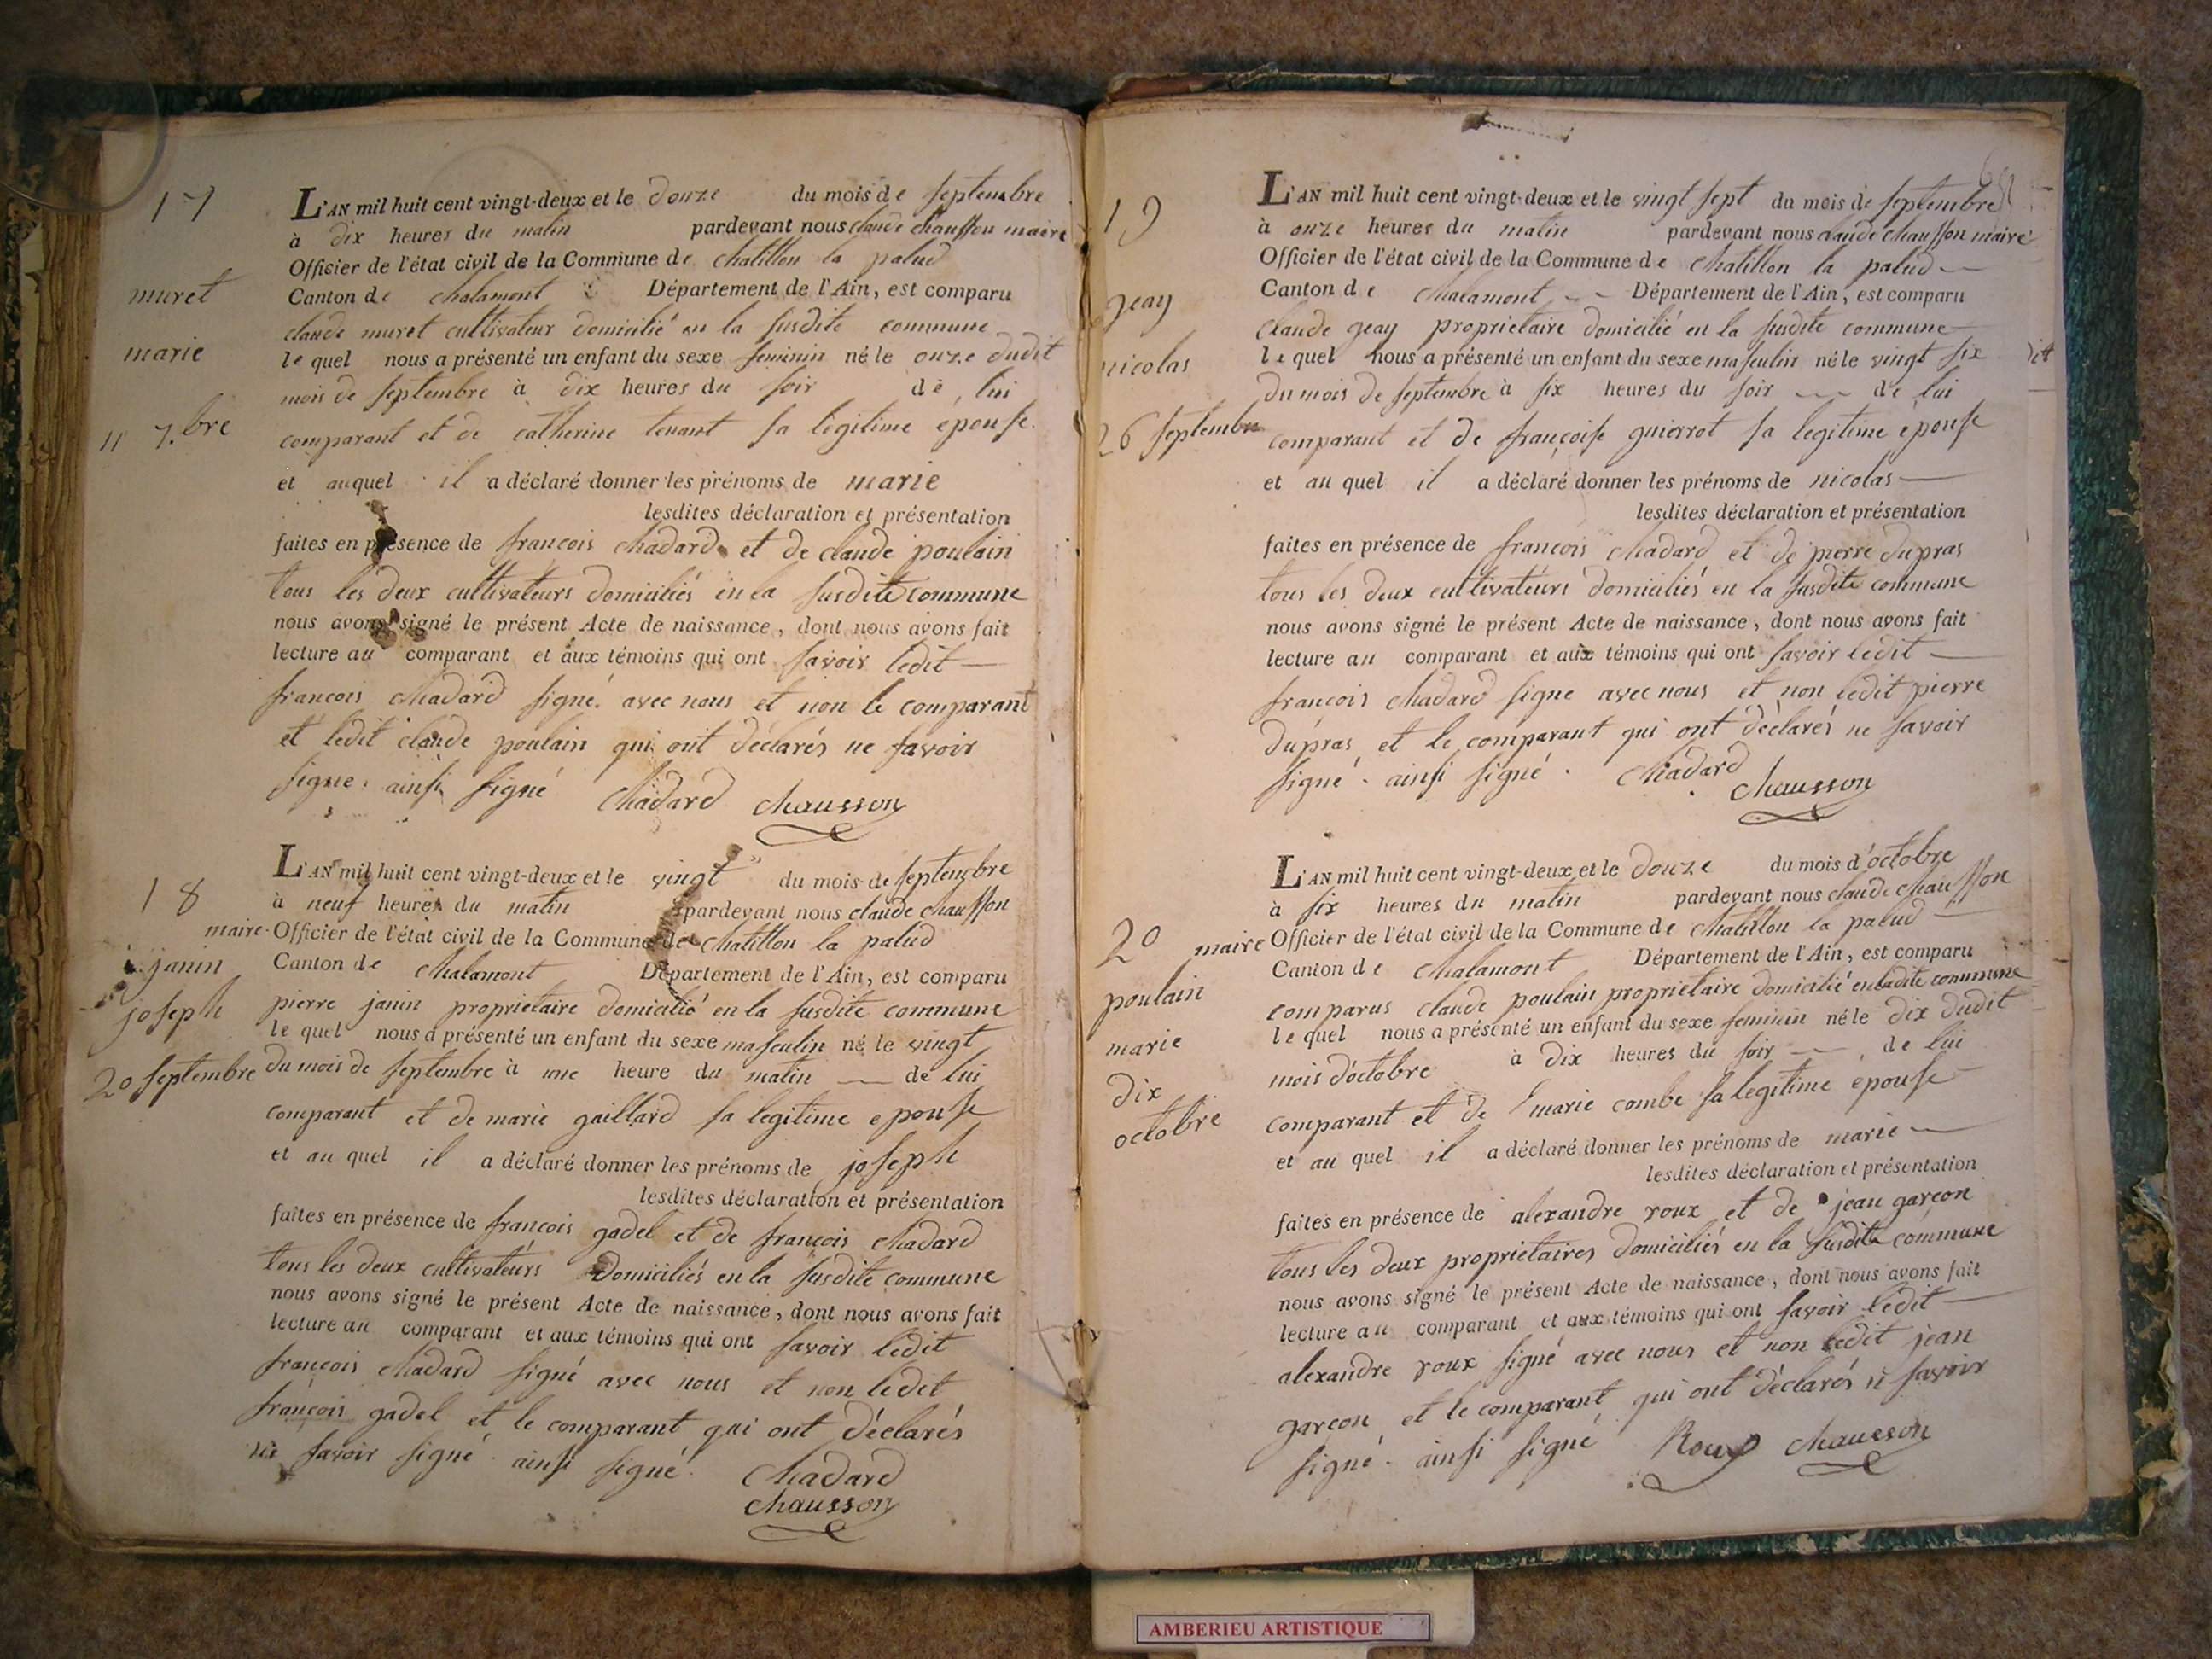 17
muret
marie
11 7.bre
L'AN mil huit cent vingt-deux et le douze du mois de septembre
à dix heures du matin pardevant nous claude chausson maire
Officier de l'état civil de la Commune de chatillon la palud
Canton de chalamont Département de l'Ain, est comparu
claude muret cultivateur domicilié en la susdite commune
le quel nous a présenté un enfant du sexe feminin né le onze dudit
mois de septembre à dix heures du soir de lui
comparant et de catherine tenant sa legitime épouse.
et auquel il a déclaré donner les prénoms de marie
lesdites déclaration et présentation
faites en présence de francois chadard et de claude poulain
tous les deux cultivateurs domiciliés en la susdite commune
nous avons signé le présent Acte de naissance, dont nous avons fait
lecture au comparant et aux témoins qui ont savoir ledit
francois chadard signé avec nous et non le comparant
et ledit claude poulain qui ont déclarés ne savoir
signe. ainsi signé chadard chausson
18
janin
joseph
20 septembre
L'AN mil huit cent vingt-deux et le vingt du mois de septembre
à neuf heures du matin pardevant nous claude chausson
maire Officier de l'état civil de la Commune de chatillon la palud
Canton de chalamont Département de l'Ain, est comparu
pierre janin proprietaire domicilié en la susdite commune
le quel nous a présenté un enfant du sexe masculin né le vingt
du mois de septembre à une heure du matin de lui
comparant et de marie gaillard sa legitime epouse
et au quel il a déclaré donner les prénoms de joseph
lesdites déclaration et présentation
faites en présence de francois gadel et de francois chadard
tous les deux cultivateurs domiciliés en la susdite commune
nous avons signé le présent Acte de naissance, dont nous avons fait
lecture au comparant et aux témoins qui ont savoir ledit
francois chadard signé avec nous et non ledit
francois gadel et le comparant qui ont déclarés
ne savoir signé. ainsi signé. chadard
chausson
19
geay
nicolas
26 septembre
L'AN mil huit cent vingt-deux et le vingt sept du mois de septembre
à onze heures du matin pardevant nous claude chausson maire
Officier de l'état civil de la Commune de chatillon la palud
Canton de chalamont Département de l'Ain, est comparu
claude geay proprietaire domicilié en la susdite commune
le quel nous a présenté un enfant du sexe masculin né le vingt six dit
du mois de septembre à six heures du soir de lui
comparant et de françoise guierrot sa legitime épouse
et au quel il a déclaré donner les prénoms de nicolas
lesdites déclaration et présentation
faites en présence de francois chadard et de pierre dupras
tous les deux cultivateurs domiciliés en la susdite commune
nous avons signé le présent Acte de naissance, dont nous avons fait
lecture au comparant et aux témoins qui ont savoir ledit
francois chadard signe avec nous et non ledit pierre
dupras et le comparant qui ont déclarés ne savoir
signé. ainsi signé. chadard
chausson
20
poulain
marie
dix
octobre
L'AN mil huit cent vingt-deux et le douze du mois d'octobre
à six heures du matin pardevant nous claude chausson
maire Officier de l'état civil de la Commune de chatillon la palud
Canton de chalamont Département de l'Ain, est comparu
comparus claude poulain proprietaire domicilié en ladite commune
le quel nous a présenté un enfant du sexe feminin né le dix dudit
mois d'octobre à dix heures du soir de lui
comparant et de marie combe sa legitime epouse
et au quel il a déclaré donner les prénoms de marie
lesdites déclaration et présentation
faites en présence de alexandre roux et de jean garcon
tous les deux proprietaires domiciliés en la susdite commune
nous avons signé le présent Acte de naissance, dont nous avons fait
lecture au comparant et aux témoins qui ont savoir ledit
alexandre roux signé avec nous et non ledit jean
garcon et le comparant qui ont déclarés n savoir
signé. ainsi signé Roux chausson
AMBERIEU ARTISTIQUE